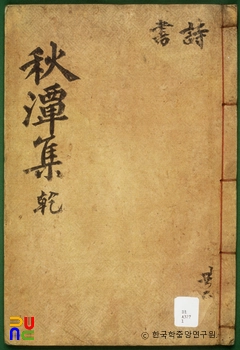 詩書
秋潭集 乾
© 한국학중앙연구원